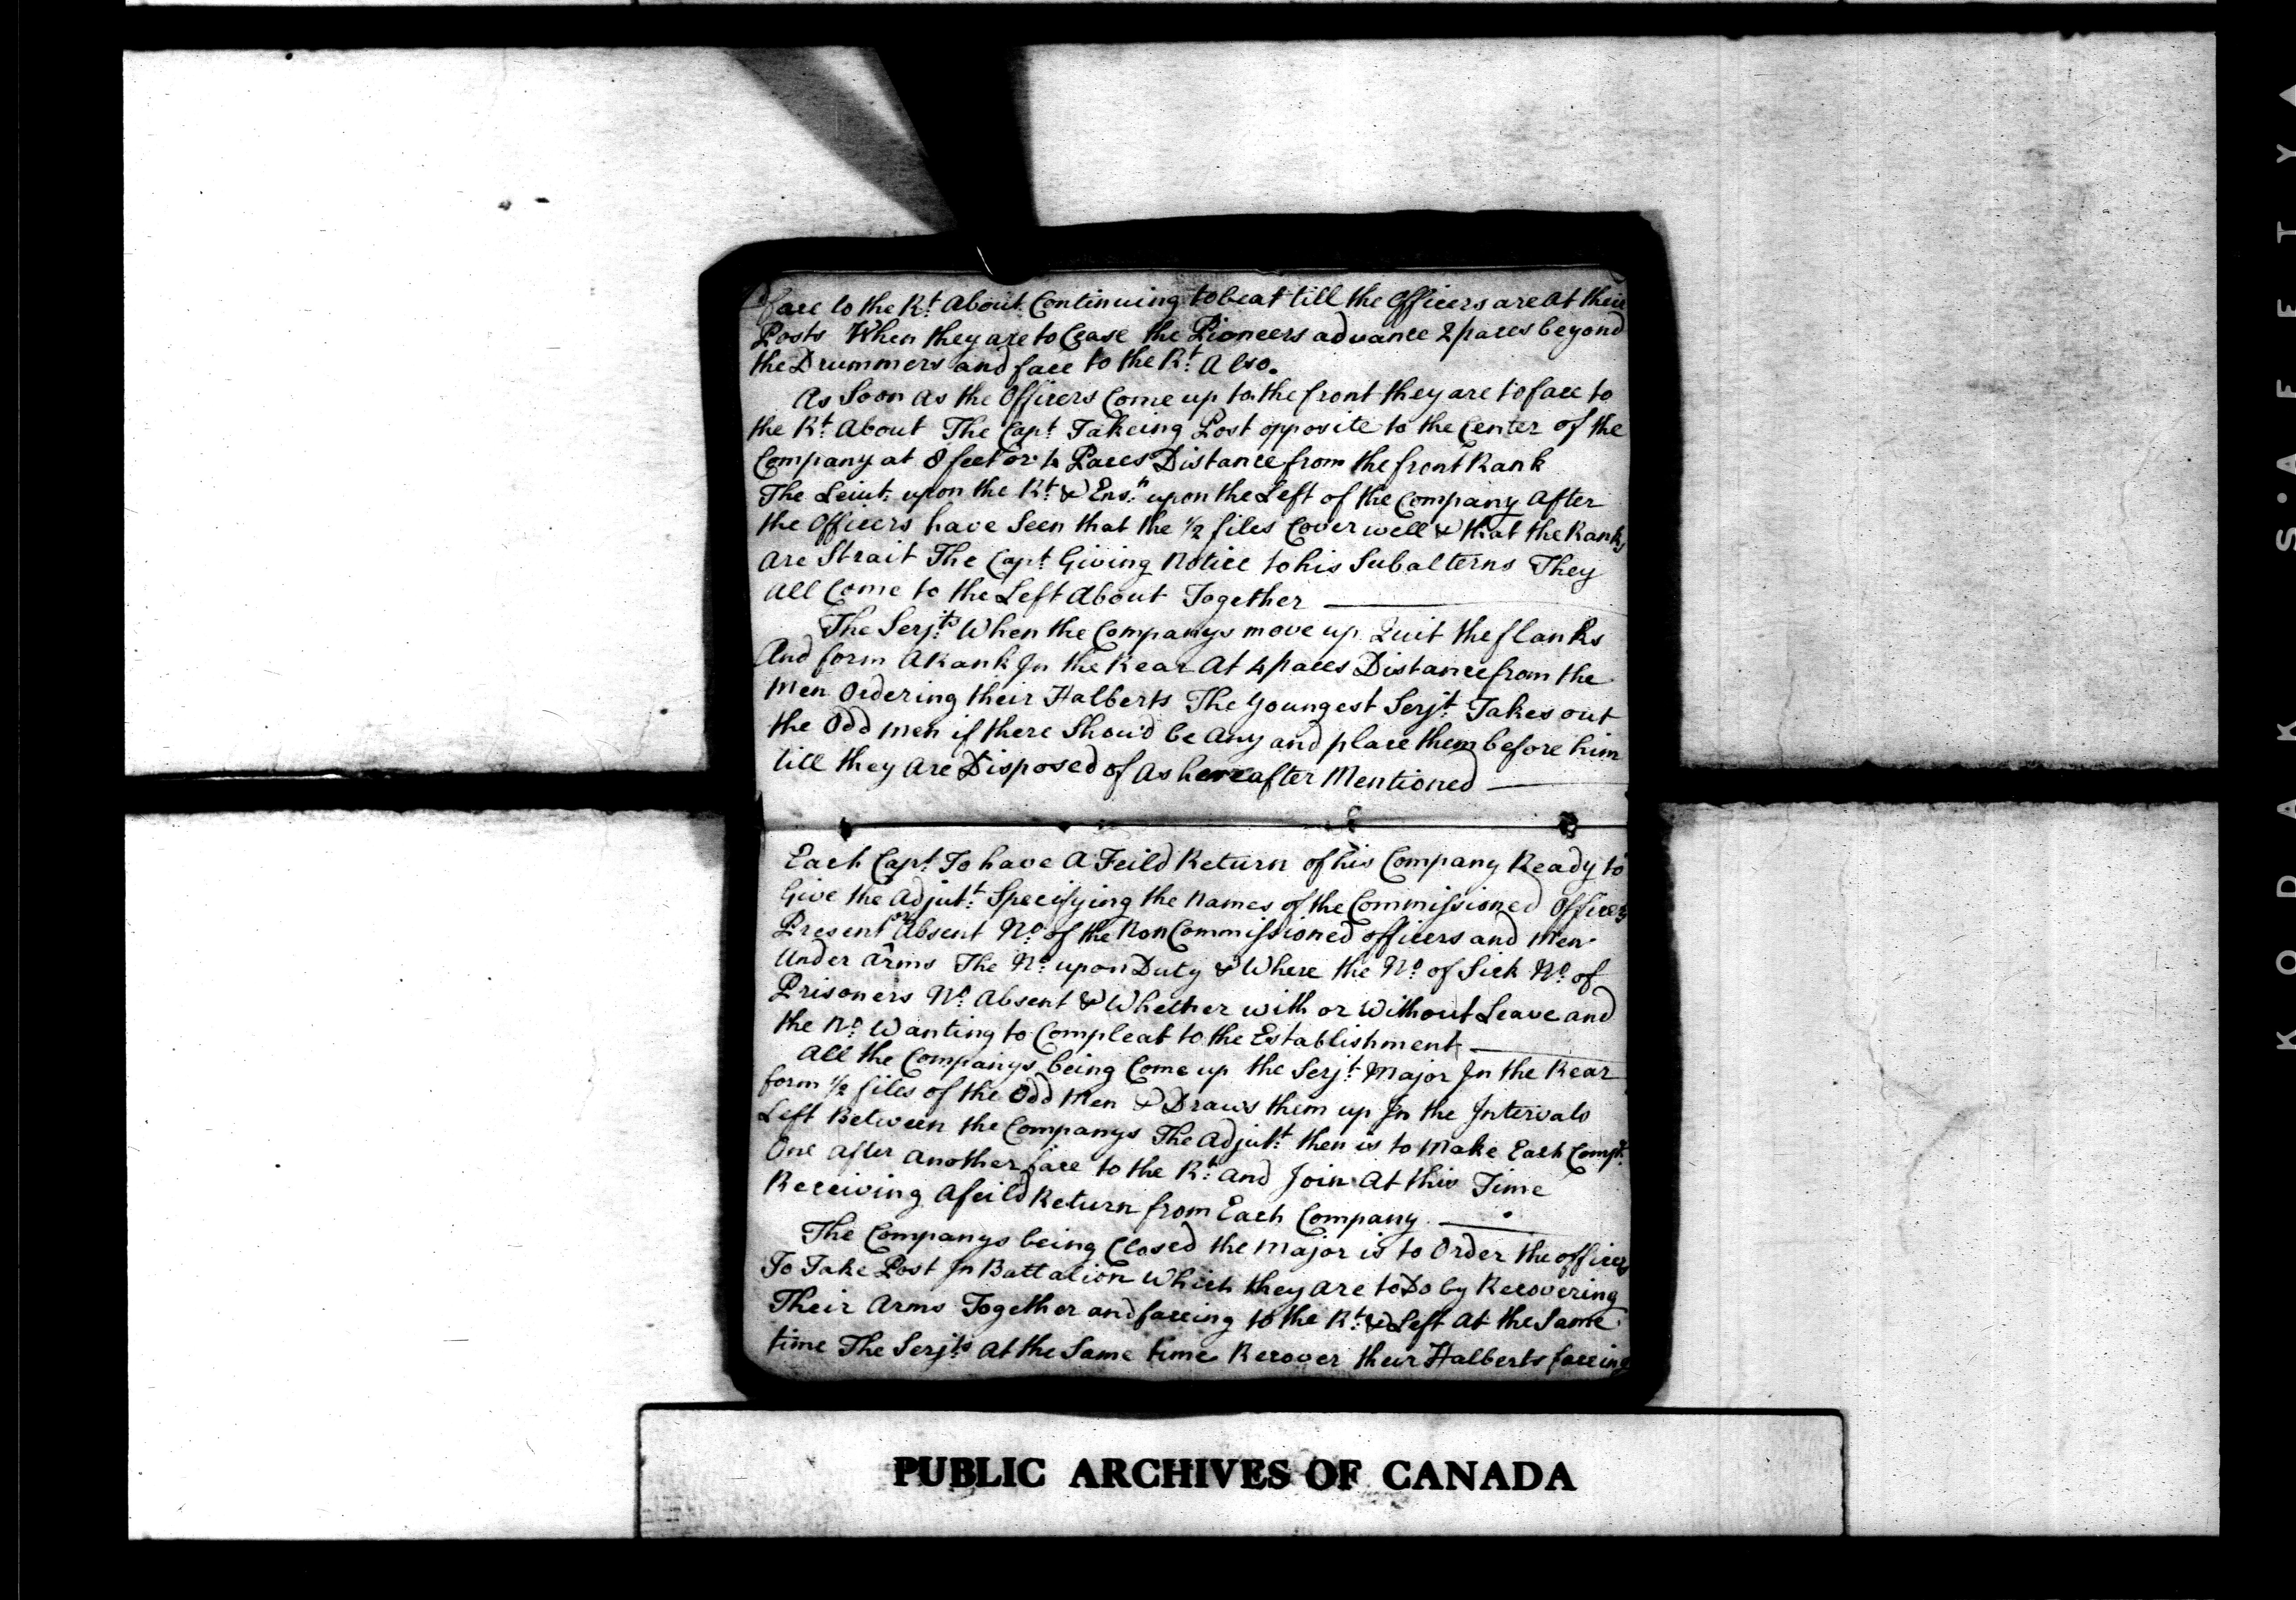 face to the Rt. About Continuing to beat till the Officers are At their
Posts When they are to Cease the Pioneers advance 2 paces beyond
the Drummers and face to the Rt. Also.
As Soon As the Officers Come up to the front they are to face to
the Rt. About The Capt. Takeing Post opposite to the Center of the
Company at 8 feet or 4 Paces Distance from the front Rank
The Leiut. upon the Rt. & Ensn. upon the Left of the Company After
the Officers have Seen that the 1/2 files Cover well & that the Ranks
Are Strait The Capt. Giving Notice to his Subalterns They
All Come to the Left About Together
The Serjts. When the Companys move up Quit the flanks
And form A Rank In the Rear At 4 paces Distance from the
Men Ordering their Halberts The Youngest Serjt. Takes out
the Odd men if there Shou'd be Any and place them before him
till they Are Disposed of As hereafter Mentioned
Each Capt. To have A Feild Return of his Company Ready to
Give the Adjut. Specifying the Names of the Commissioned Officers
Present or Absent No. of the Non Commissioned officers and Men
Under Arms The No. upon Duty & Where the No. of Sick No. of
Prisoners No. Absent & Whether with or Without Leave and
the No. Wanting to Compleat to the Establishment
All the Companys being Come up the Serjt. Major In the Rear
form 1/2 files of the Odd Men & Draws them up In the Intervals
Left Between the Companys The Adjutt. then is to Make Each Compy.
One after Another face to the Rt. And Join At this Time
Receiving A feild Return from Each Company
The Companys being Closed the Major is to Order the officers
To Take Post In Battalion Which they Are to Do by Recovering
Their Arms Together and faceing to the Rt. & Left At the Same
time The Serjts. At the Same time Recover their Halberts faceing
PUBLIC ARCHIVES OF CANADA
KODAK S·AFETY